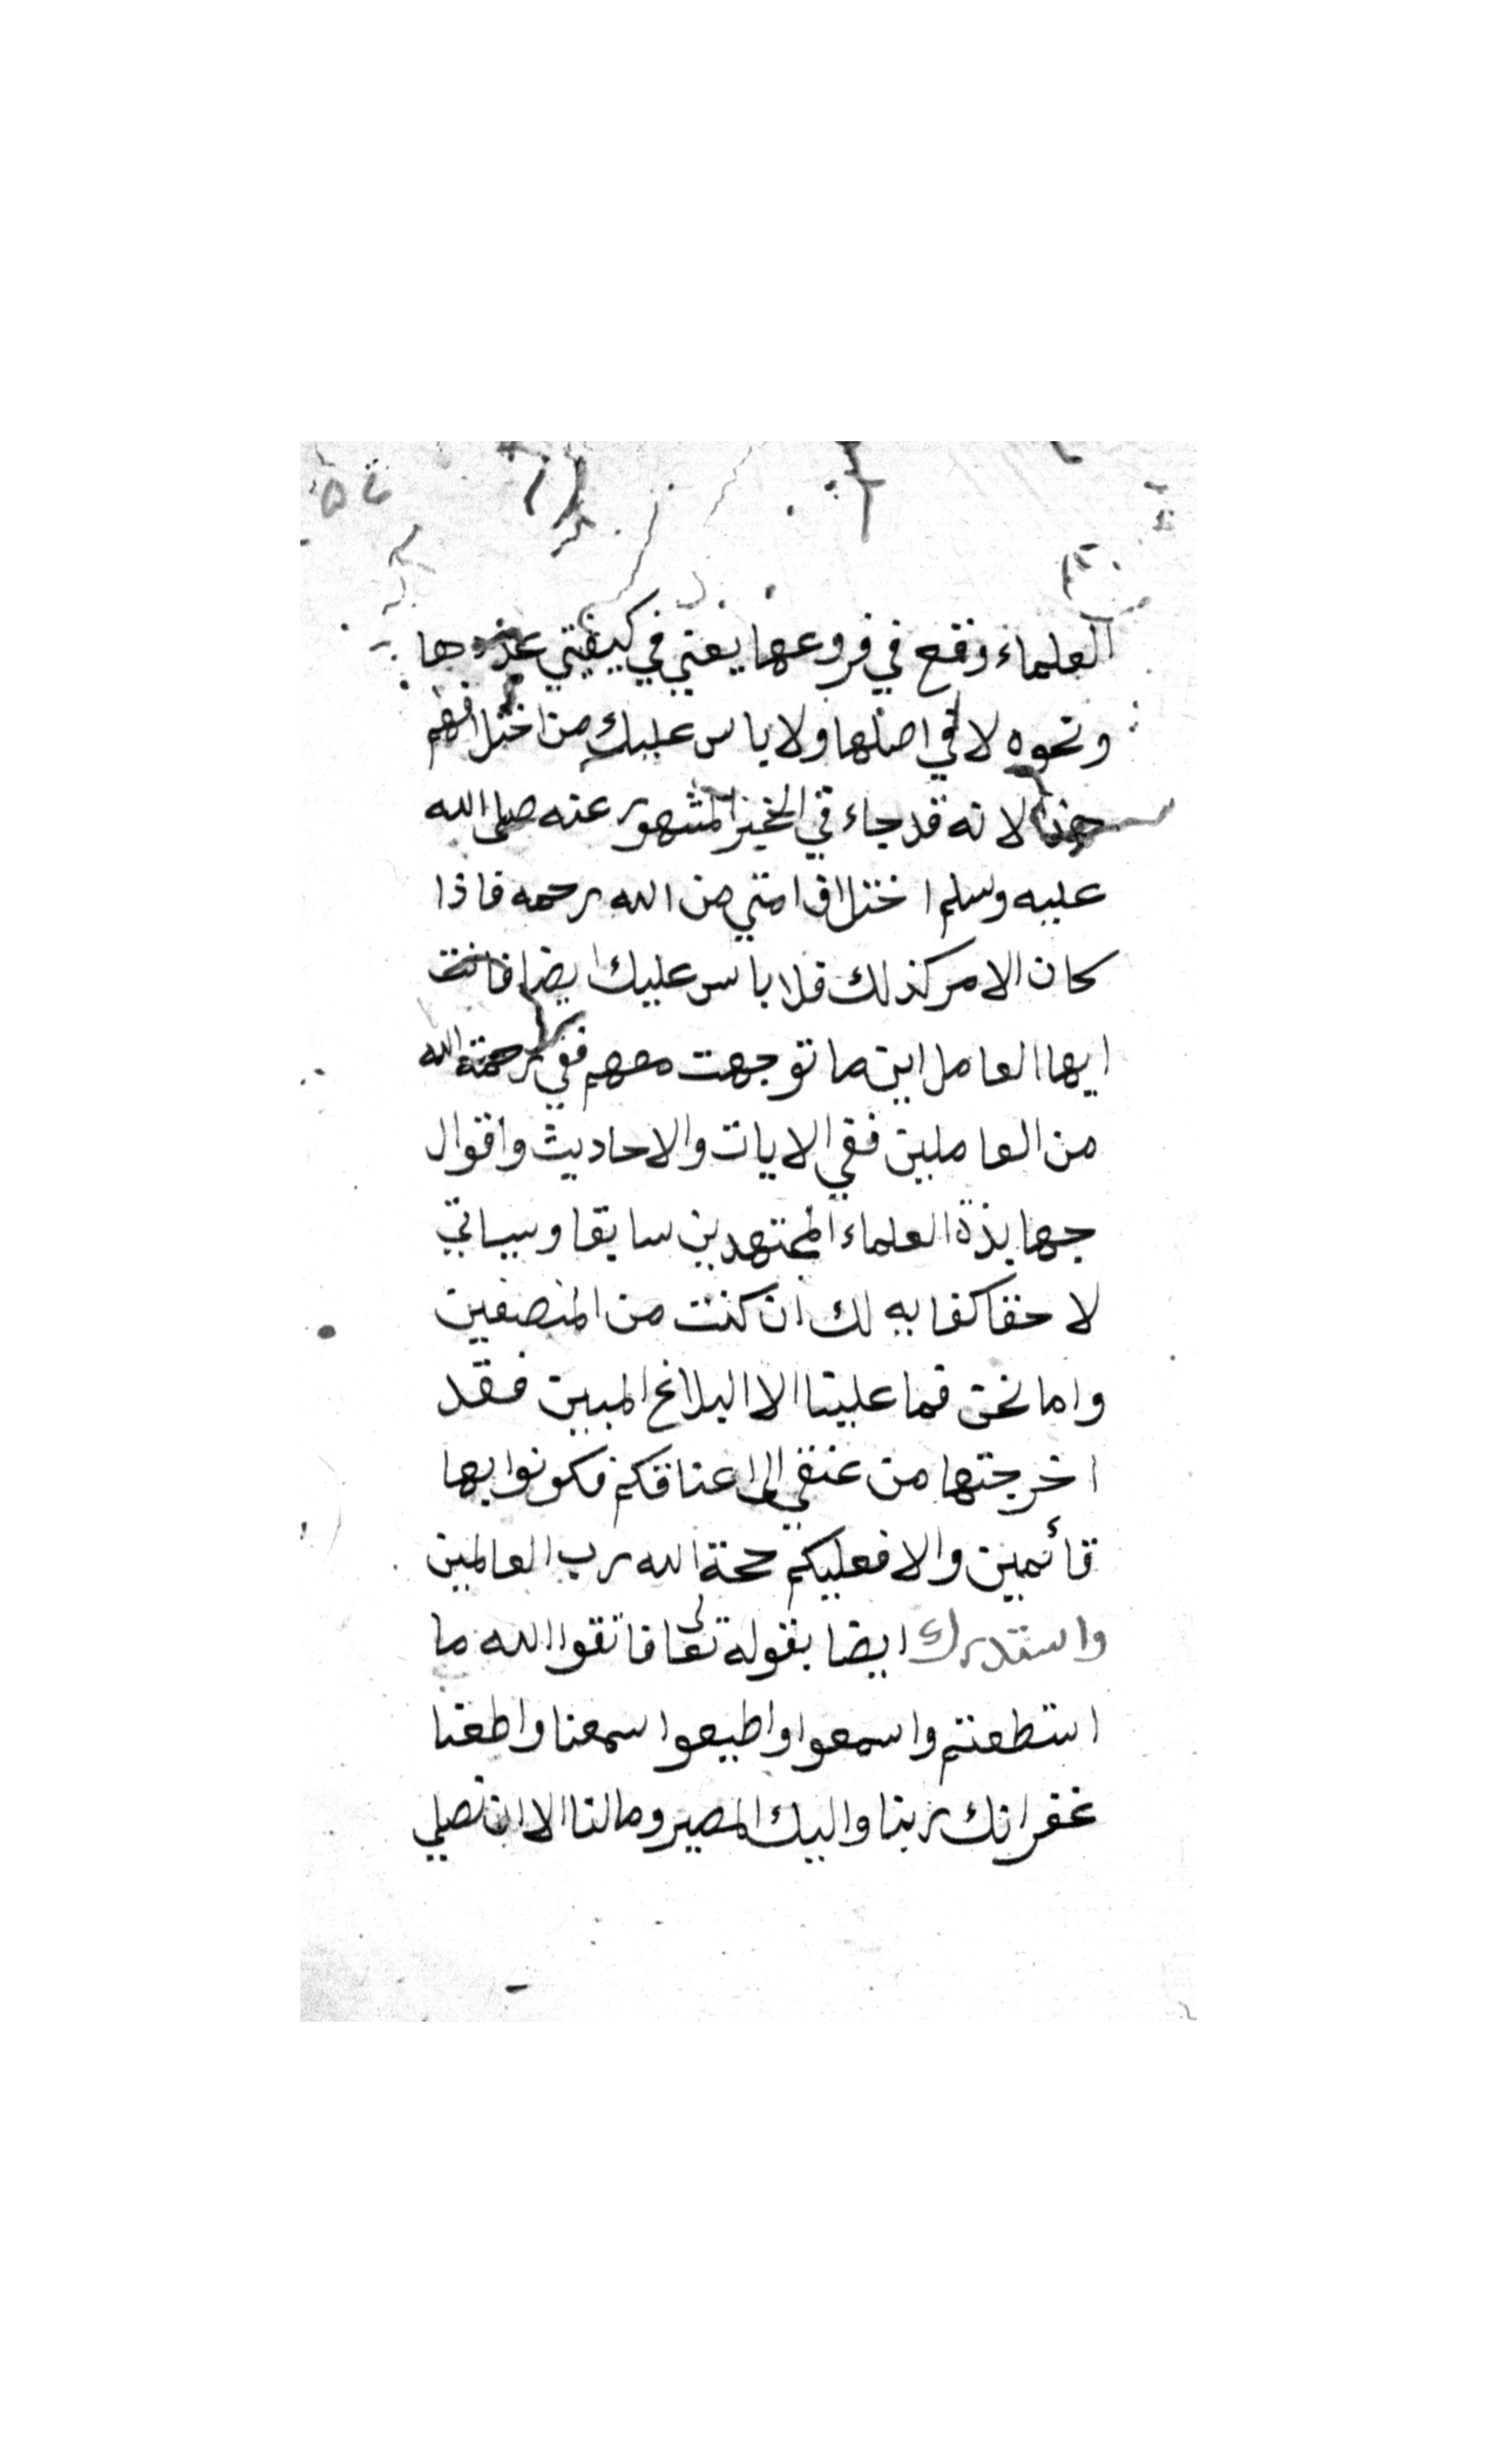 العلماء وقع في فروعها يعني في كيفيتي عددها
ونحوه لا في اصلها ولا باس عليك من اختلافهم
هذا لانه قد جاء في الخبر المشهور عنه صلى الله
عليه وسلم اختلاف امتي من الله رحمه فاذا
كان الامر كذلك فلا باس عليك ايضا فانت
ايها العامل اين ما توجهت معهم ففي رحمة الله
من العاملين ففي الايات والاحاديث واقوال
جهابذة العلماء المجتهدين سابقا وسياتي
لاحقا كفا به لك ان كنت من المنصفين
واما نحن فما علينا الا البلاغ المبين فقد
اخرجتها من عنقي الى اعناقكم فكونوا بها
قائمين والا فعليكم حجة الله رب العالمين
ايضا بقوله تعالى فاتقوا الله ما
استطعتم واسمعوا واطيعوا سمعنا واطعنا
غفرانك ربنا واليك المصير وما لنا الا ان نصلي